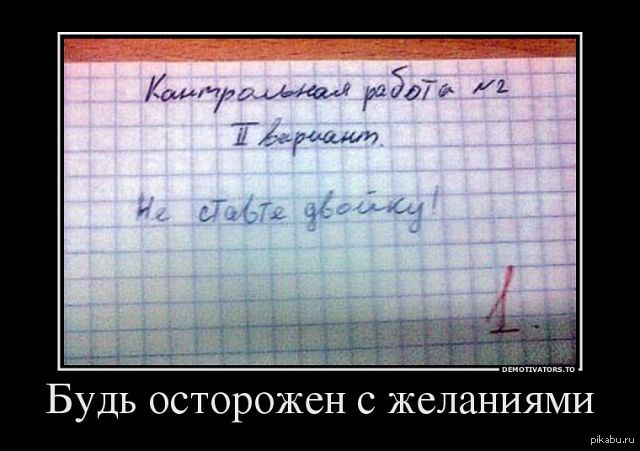 Контрольная работа №2
II вариант.
Не ставте двойку!
1.
DEMOTIVATORS.TO
Будь осторожен с желаниями
pikabu.ru